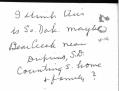 I think this
is So. Dak. maybe
Bear Creek near
Dupree, S.D.
Counting S. home
+ family?